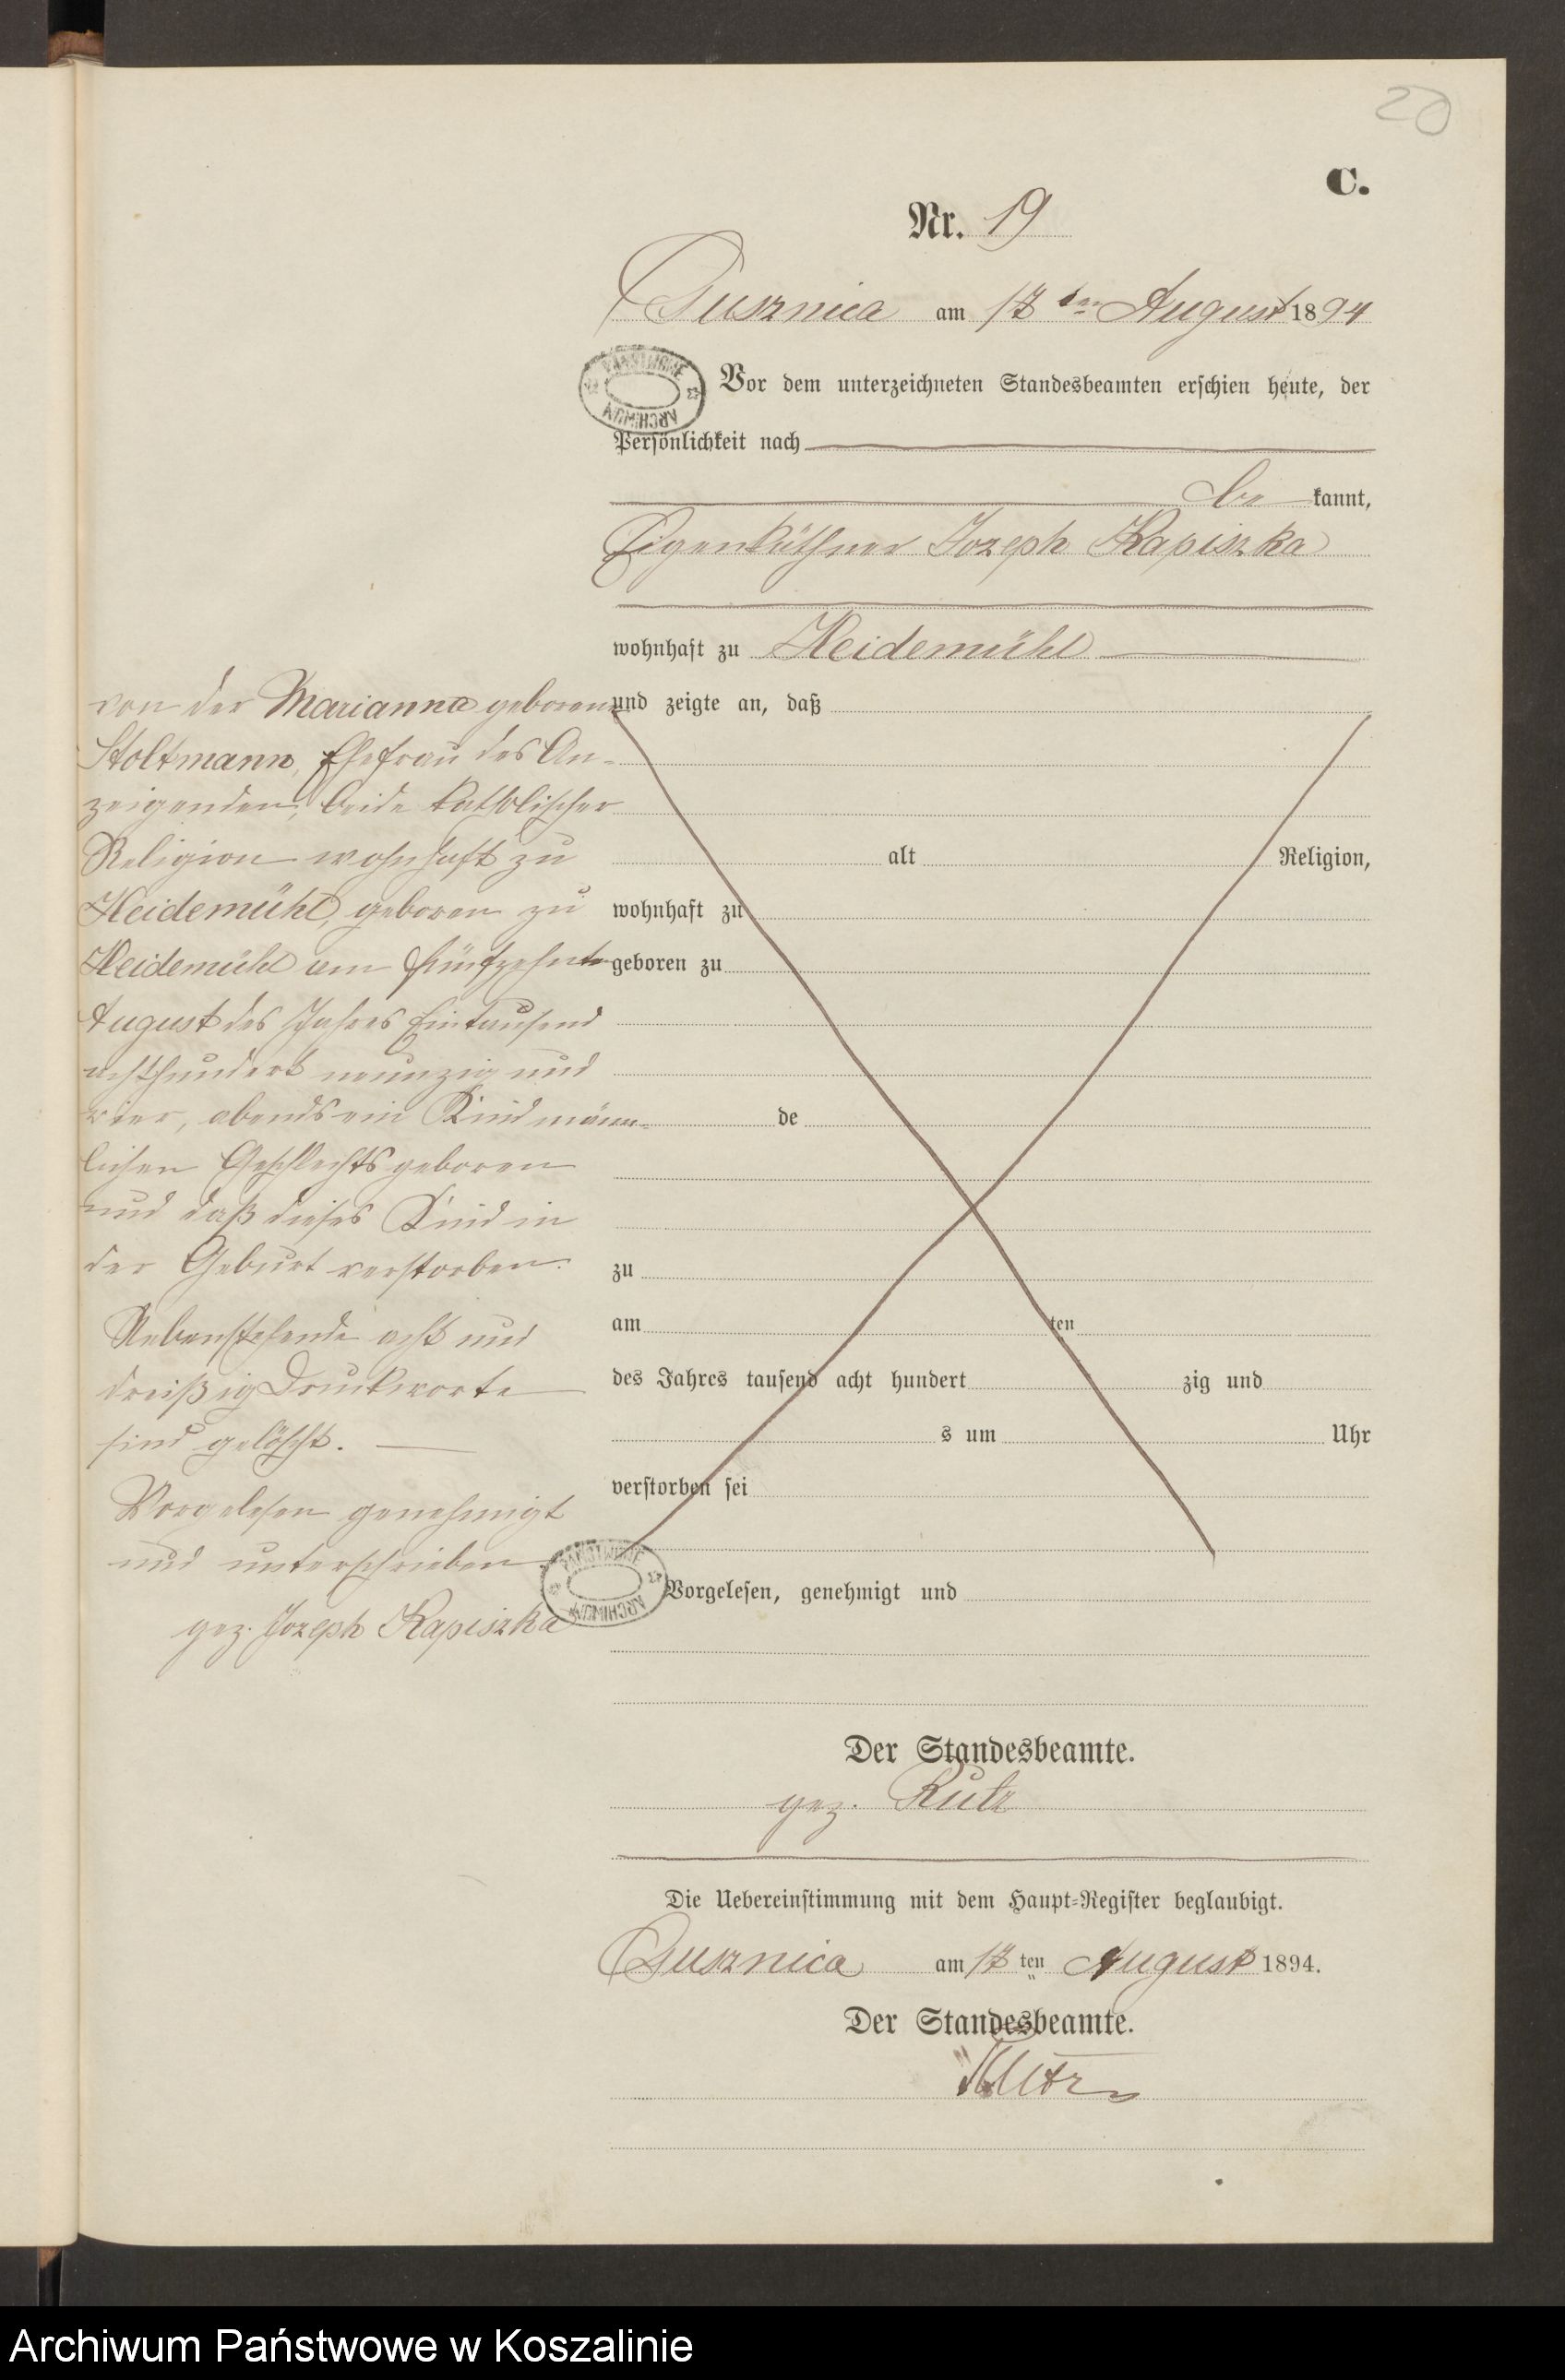 20
C.
Nr. 19
am 17 ten August 1894
PAŃSTWOWE
ARCHIWUM
Vor dem unterzeichneten Standesbeamten erschien heute, der
Persönlichkeit nach
be kannt,
Eigenkäthner Joseph Kapiszka
wohnhaft zu Heidemühl
und zeigte an, daß
von der Marianna geborene
Stoltmann, Ehefrau des An-
zeigenden, beide katholischer
Religion wohnhaft zu
Heidemühl, geboren zu
Heidemühl am fünfzehnten
August des Jahres Eintausend
achthundert neunzig und
vier, abends ein Kind männ-
lichen Geschlechts geboren
und daß dieses Kind in
der Geburt verstorben.
Nebenstehende acht und
dreißig Druckworte
sind gelöscht.
Vorgelesen genehmigt
und unterschrieben
gez. Joseph Kapiszka
alt Religion,
wohnhaft zu
geboren zu
de
zu
am ten
des Jahres tausend acht hundert zig und
s um Uhr
verstorben sei
PAŃSTWOWE
ARCHIWUM
Vorgelesen, genehmigt und
Der Standesbeamte.
gez. Rutz
Die Uebereinstimmung mit dem Haupt-Register beglaubigt.
am 17 ten August 1894.
Der Standesbeamte.
Rutz
Archiwum Państwowe w Koszalinie